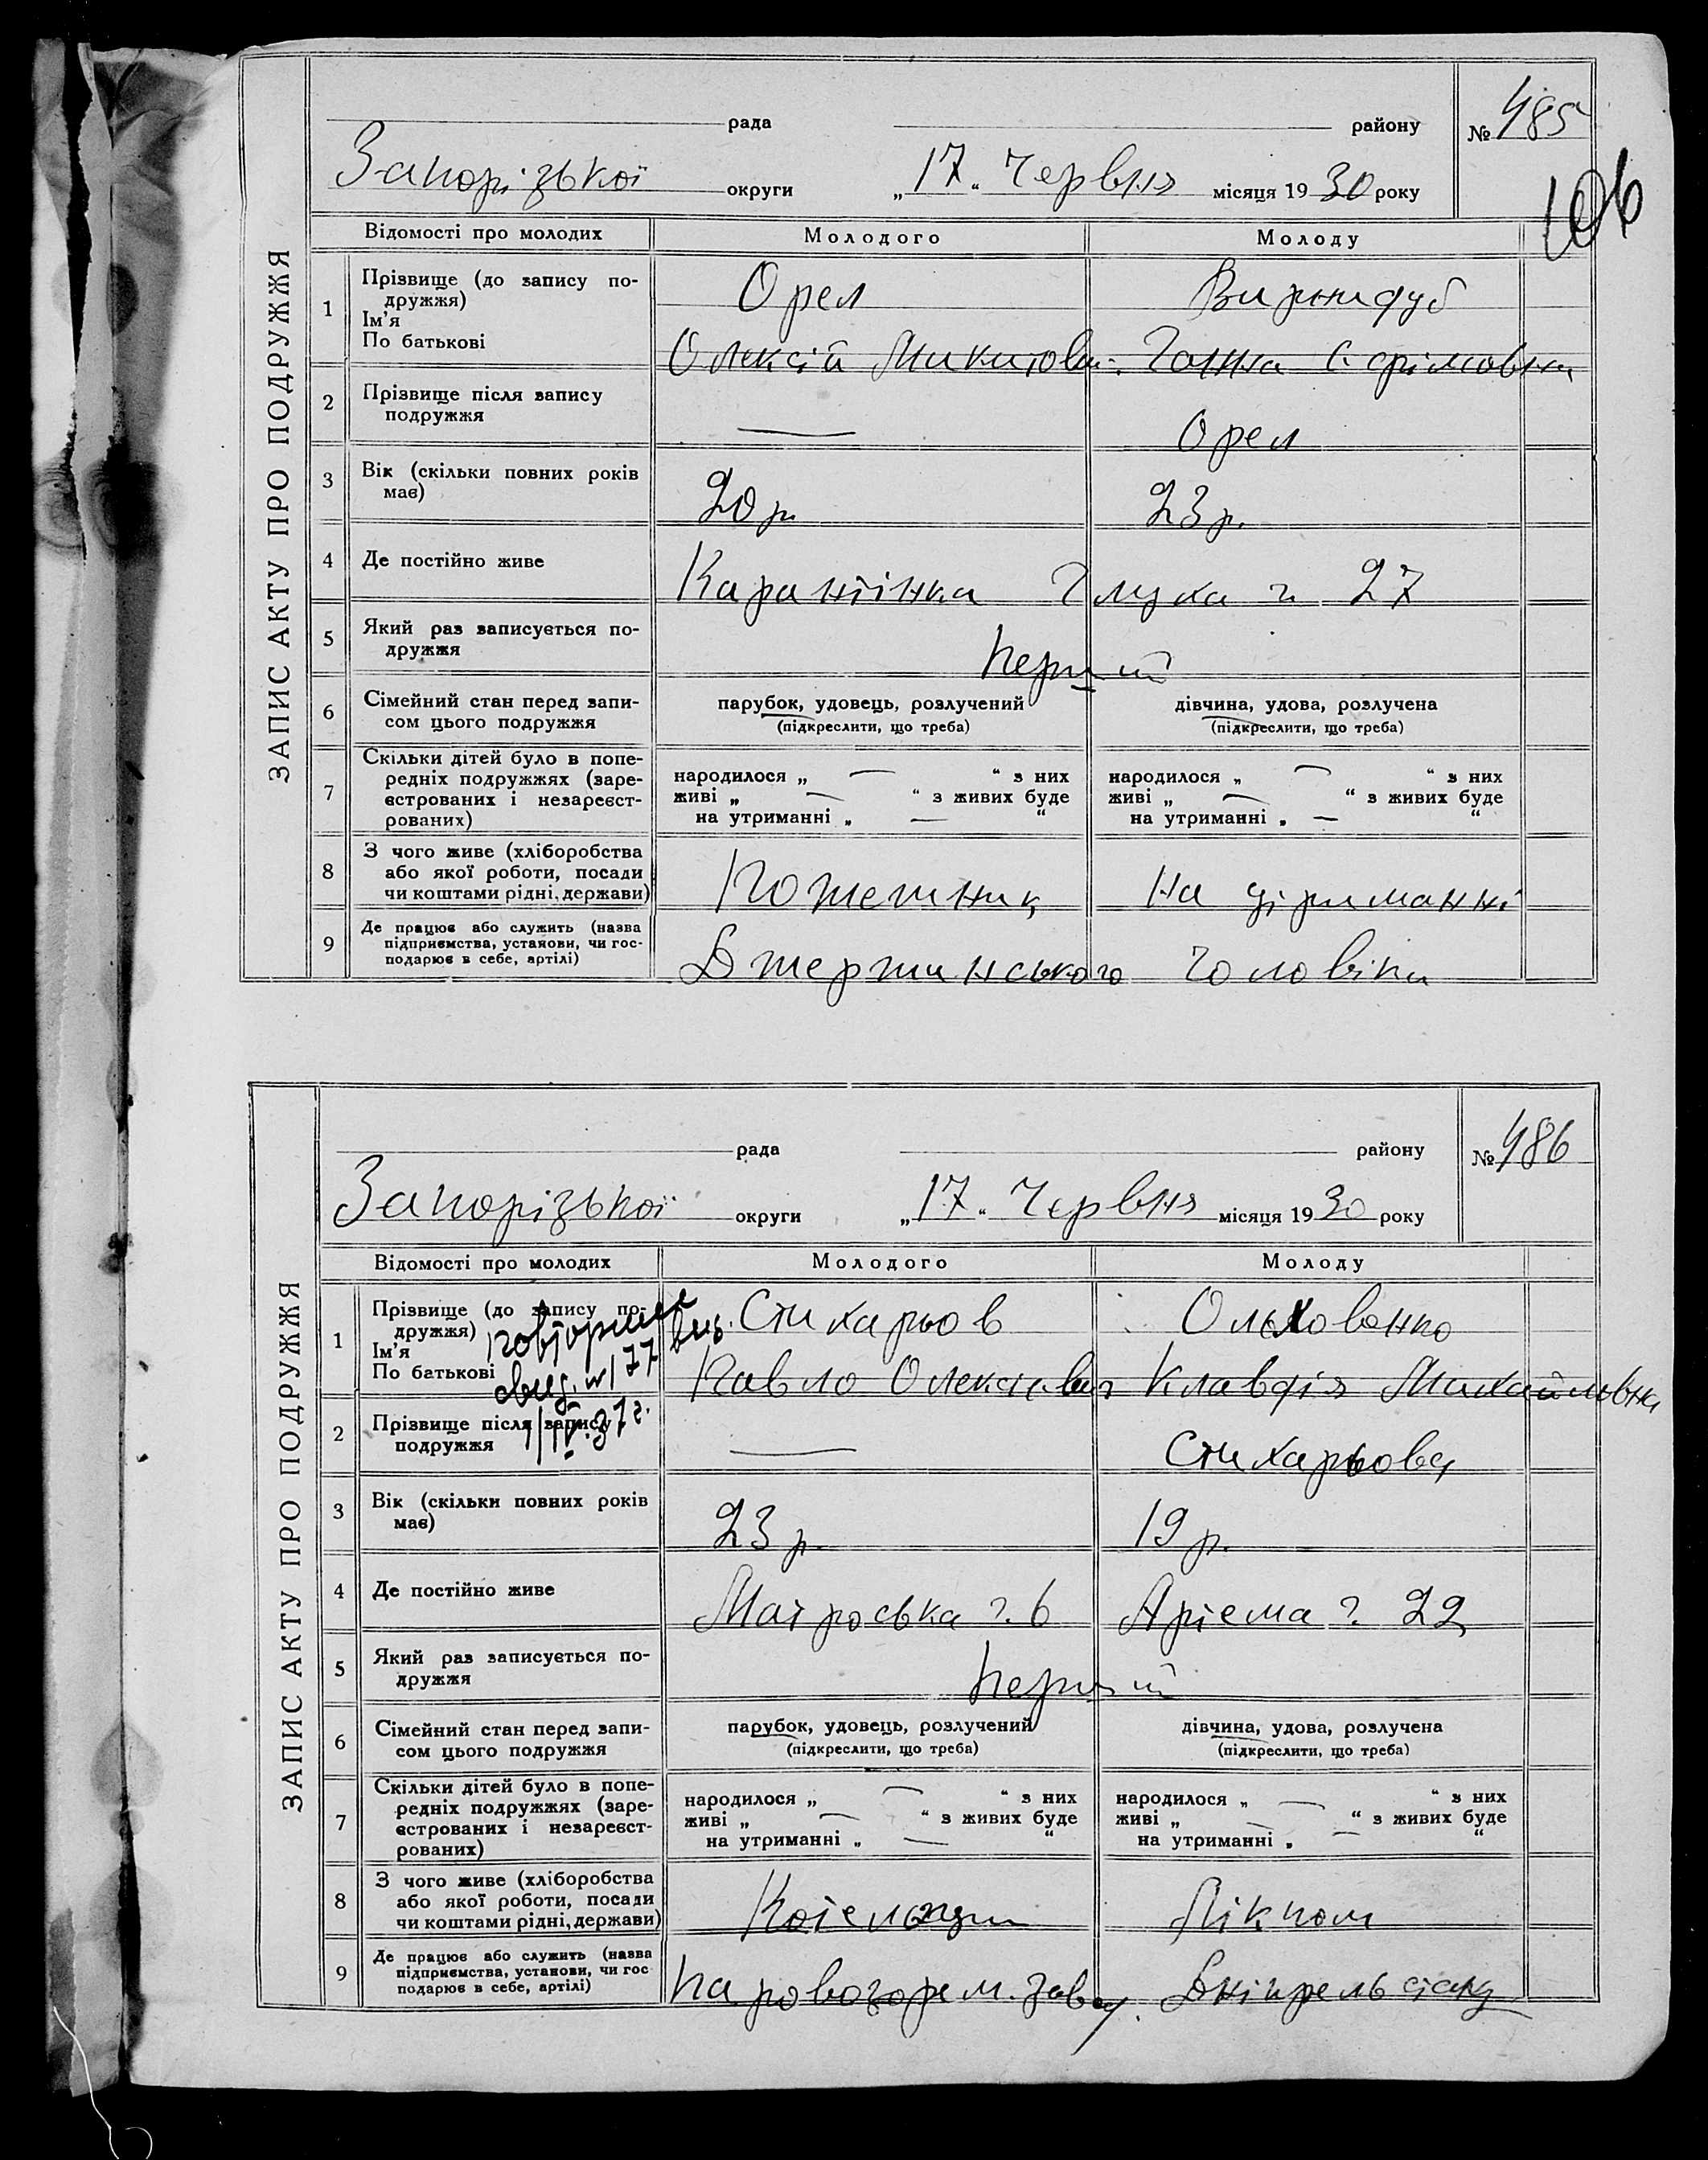 ЗАПИС АКТУ ПРО ПОДРУЖЖЯ
рада района № 485
Запорізької округи „17“ Червня місяця 1930 року
106
Відомості про молодих Молодого Молоду
1 Прізвище (до запису по-
дружжя)
Ім'я
По батькові
Орел Вирнидуб
Олексій Микитов. Ганна Єфрімовна
2 Прізвище після запису
подружжя
— Орел
3 Вік (скільки повних років
має)
20 р. 23 р.
4 Де постійно живе
Карантінка Глуха ч. 27
5 Який раз записується по-
дружжя
Перший
6 Сімейний стан перед запи-
сом цього подружжя
парубок, удовець, розлучений дівчина, удова, розлучена
(підкреслити, що треба) (підкреслити, що треба)
7 Скільки дітей було в попе-
редніх подружжях (заре-
єстрованих і незареєст-
рованих)
народилося „ — “ з них народилося „ — “ з них
живі „ — “ з живих буде живі „ — “ з живих буде
на утриманні „ — “ на утриманні „ — “
8 З чого живе (хліборобства
або якої роботи, посади
чи коштами рідні, держави)
На утриманні
9 Де працює або служить (назва
підприємства, установи, чи гос-
подарює в себе, артілі)
Джержинського чоловіка
ЗАПИС АКТУ ПРО ПОДРУЖЖЯ
рада району № 486
Запорізької округи „17“ Червня місяця 1930 року
Відомості про молодих Молодого Молоду
1 Прізвище (до запису по-
дружжя)
Ім'я
По батькові
Стихарьов Ольховенко
Павло Олексієвич Клавдія Михайловна
2 Прізвище після запису
подружжя
— Стихарьова
3 Вік (скільки повних років
має)
23 р. 19 р.
4 Де постійно живе
Матроська ч. 6 Артема ч. 22
5 Який раз записується по-
дружжя
Перший
6 Сімейний стан перед запи-
сом цього подружжя
парубок, удовець, розлучений дівчина, удова, розлучена
(підкреслити, що треба) (підкреслити, що треба)
7 Скільки дітей було в попе-
редніх подружжях (заре-
єстрованих і незареєст-
рованих)
народилося „ — “ з них народилося „ — “ з них
живі „ — “ з живих буде живі „ — “ з живих буде
на утриманні „ — “ на утриманні „ — “
8 З чого живе (хліборобства
або якої роботи, посади
чи коштами рідні, держави)
Лікпом
9 Де працює або служить (назва
підприємства, установи, чи гос
подарює в себе, артілі)
Паровозорем. завод. Дніпрельстану